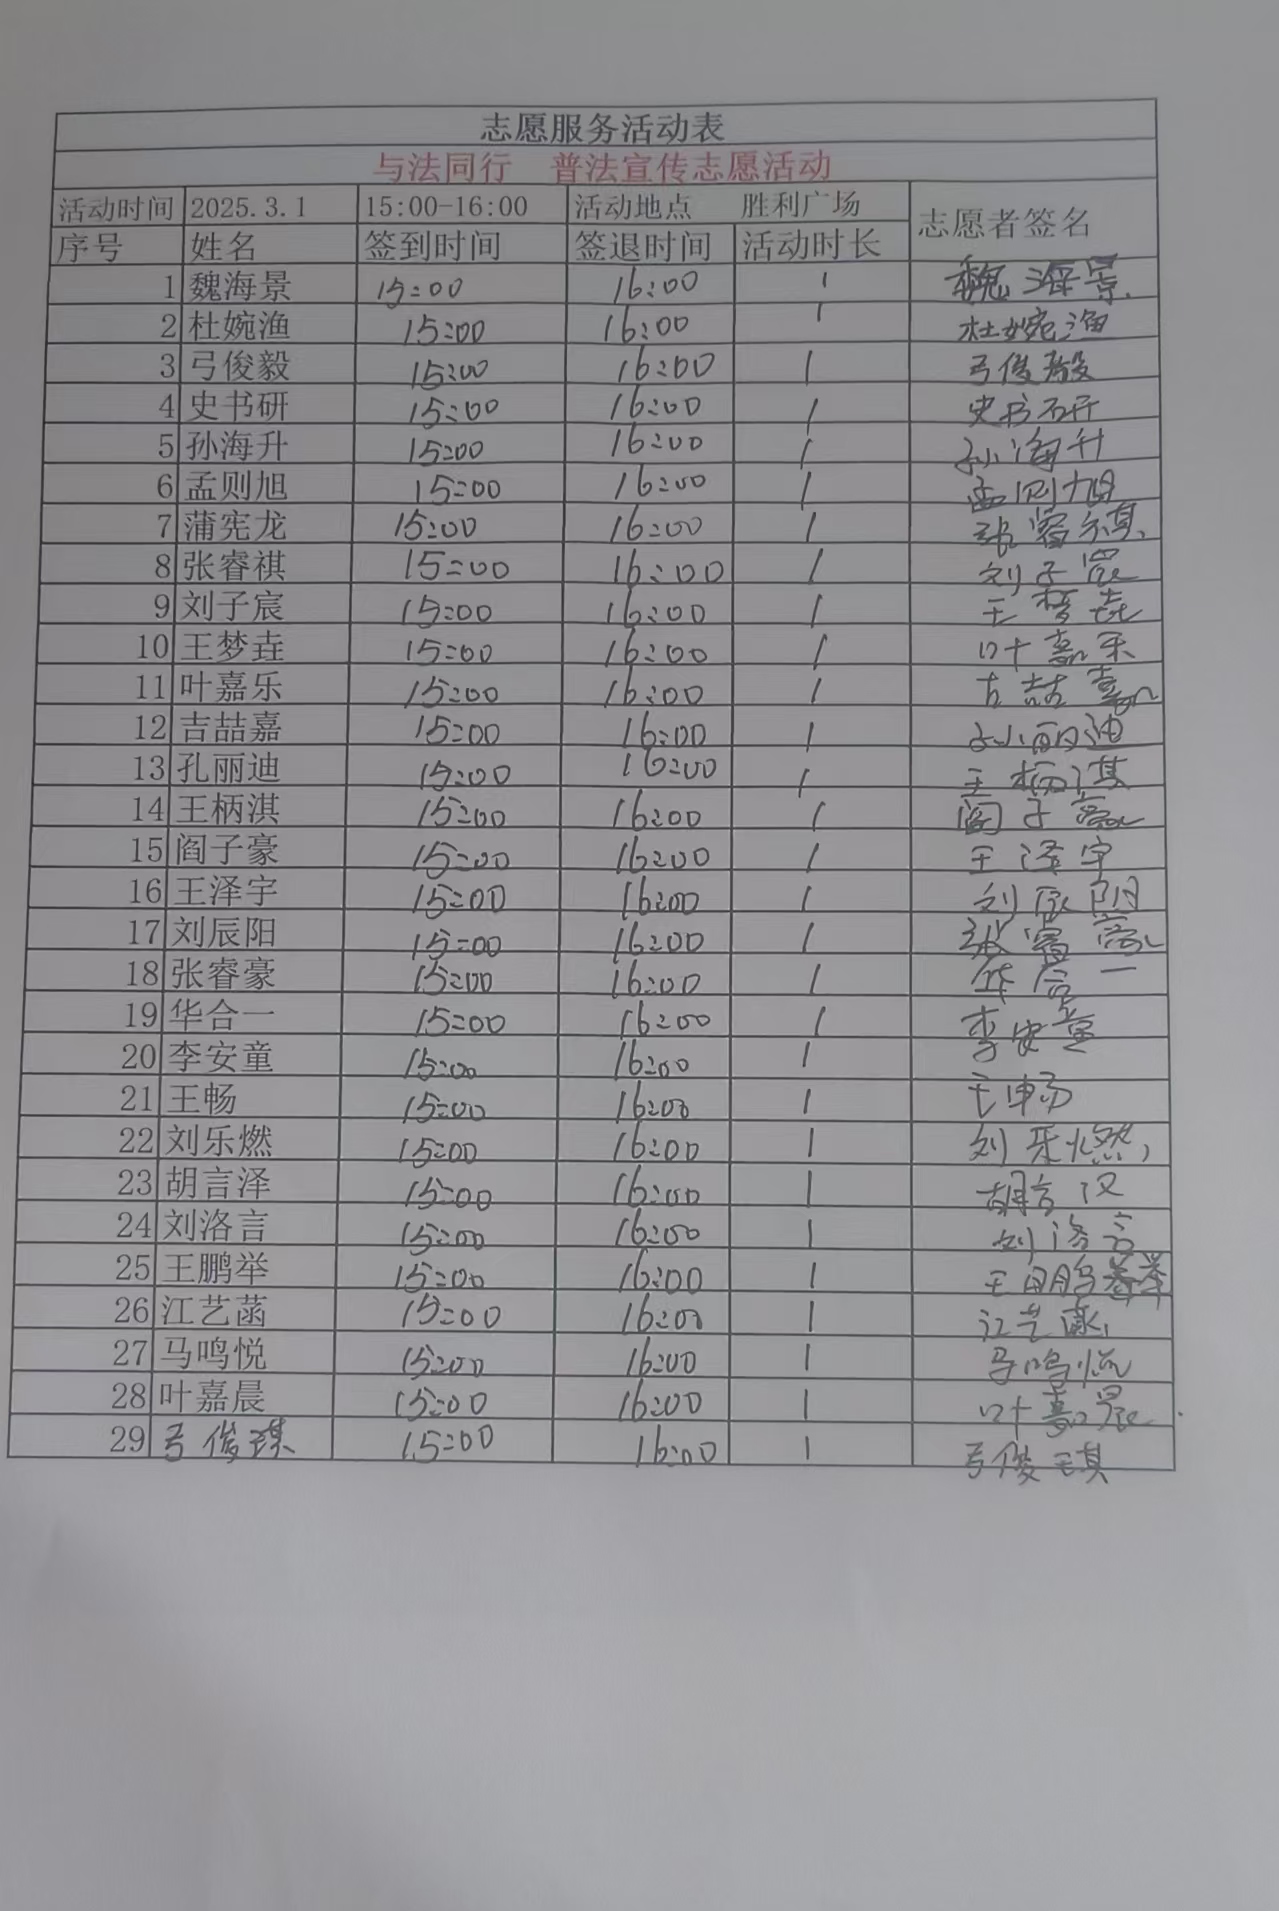 志愿服务活动表
与法同行 普法宣传志愿活动
活动时间 2025.3.1 15:00-16:00 活动地点 胜利广场 志愿者签名
序号 姓名 签到时间 签退时间 活动时长
1 魏海景 15:00 16:00 1 魏海景
2 杜婉渔 15:00 16:00 1 杜婉渔
3 弓俊毅 15:00 16:00 1 弓俊毅
4 史书研 15:00 16:00 1 史书研
5 孙海升 15:00 16:00 1 孙海升
6 孟则旭 15:00 16:00 1 孟则旭
7 蒲宪龙 15:00 16:00 1 张睿祺
8 张睿祺 15:00 16:00 1 刘子宸
9 刘子宸 15:00 16:00 1 王梦垚
10 王梦垚 15:00 16:00 1 叶嘉乐
11 叶嘉乐 15:00 16:00 1 吉喆嘉
12 吉喆嘉 15:00 16:00 1 孙丽迪
13 孔丽迪 15:00 16:00 1 王柄淇
14 王柄淇 15:00 16:00 1 阎子豪
15 阎子豪 15:00 16:00 1 王泽宇
16 王泽宇 15:00 16:00 1 刘辰阳
17 刘辰阳 15:00 16:00 1 张睿豪
18 张睿豪 15:00 16:00 1 华合一
19 华合一 15:00 16:00 1 李安童
20 李安童 15:00 16:00 1
21 王畅 15:00 16:00 1 王畅
22 刘乐燃 15:00 16:00 1 刘乐燃
23 胡言泽 15:00 16:00 1 胡言汉
24 刘洛言 15:00 16:00 1 刘洛言
25 王鹏举 15:00 16:00 1 王鹏举
26 江艺菡 15:00 16:00 1 江艺
27 马鸣悦 15:00 16:00 1 马鸣悦
28 叶嘉晨 15:00 16:00 1 叶嘉晨
29 弓俊琪 15:00 16:00 1 弓俊琪